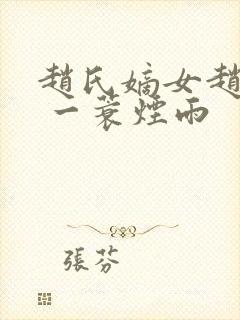 趙氏嫡女趙
一蓑煙雨
張芬